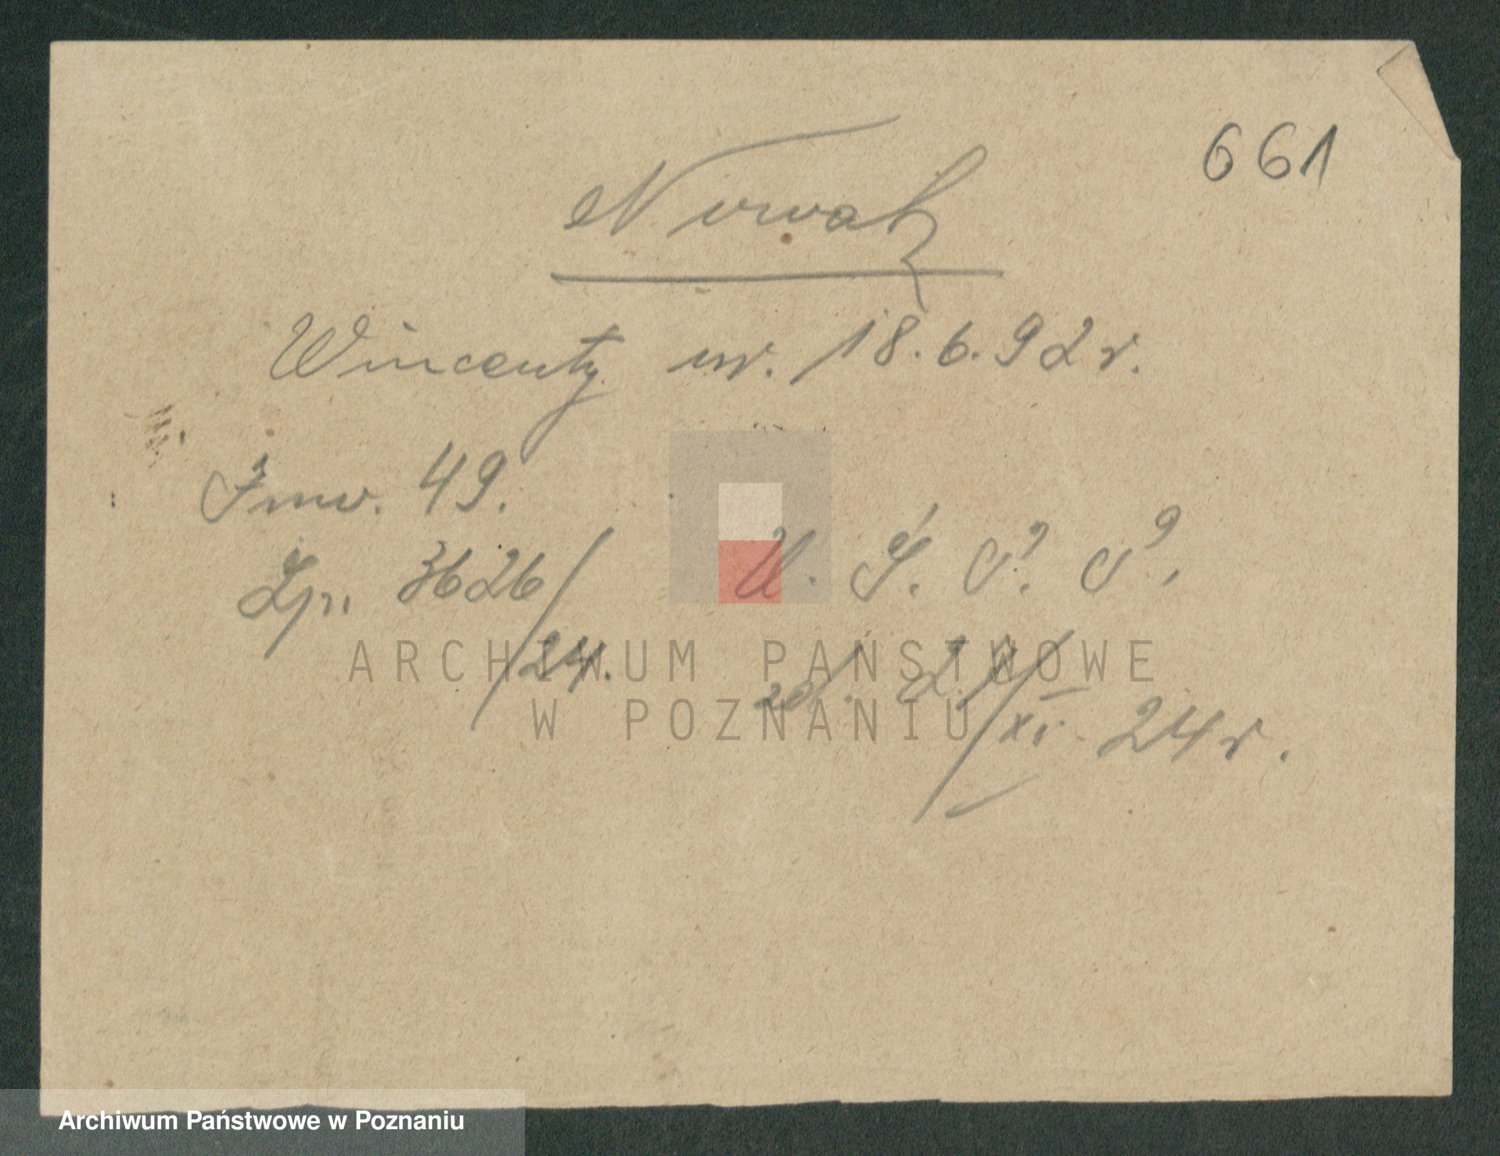 661
Nowak
Wincenty ur. 18.6.92 r.
Inw. 49.
Lp. 3626/24.
U. Ś. P. P.
zd. 21/XI. 24 r.
ARCHIWUM PAŃSTWOWE
W POZNANIU
Archiwum Państwowe w Poznaniu